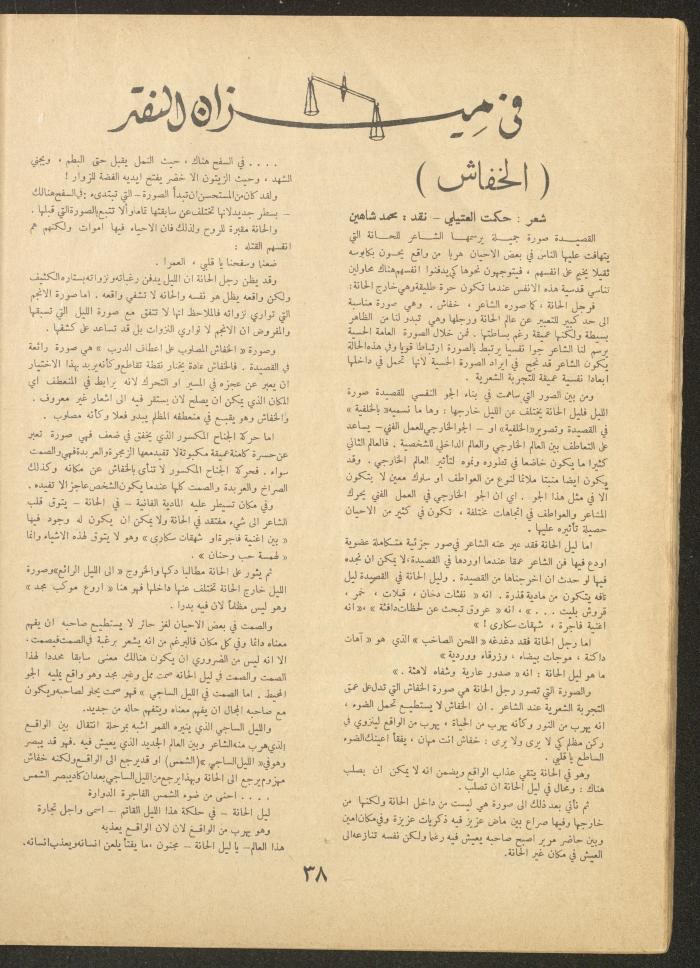 في ميزان النقد
( الخفاش )
شعر : حكمت العتيلي – نقد : محمد شاهين
القصيدة صورة جميلة يرسمها الشاعر للحانة التي
يتهافت عليها الناس في بعض الاحيان هربا من واقع يحسون بكابوسه
ثقيلا يخيم على انفسهم ، فيتوجهون نحوها كي يدفنوا انفسهم هناك محاولين
تناسي قدسية هذه الانفس عندما تكون حرة طليقة وهي خارج الحانة :
فرجل الحانة ، كما صوره الشاعر ، خفاش . وهي صورة مناسبة
الى حد كبير للتعبير عن عالم الحانة ورجلها وهي تبدو لنا من الظاهر
بسيطة ولكنها عميقة رغم بساطتها . فمن خلال الصورة العامة الحسية
يرسم لنا الشاعر جوا نفسيا يرتبط بالصورة ارتباطا قويا وفي هذه الحالة
يكون الشاعر قد نجح في ايراد الصورة الحسية لانها تحمل في داخلها
ابعادا نفسية عميقة للتجربة الشعرية .
ومن بين الصور التي ساهمت في بناء الجو النفسي للقصيدة صورة
الليل فليل الحانة يختلف عن الليل خارجها : وها ما نسميه « بالخلفية »
في القصيدة وتصوير « الخلفية » او – الجو الخارجي للعمل الفني – يساعد
على التعاطف بين العالم الخارجي والعالم الداخلي للشخصية . فالعالم الثاني
كثيرا ما يكون خاضعا في تطوره ونموه لتأثير العالم الخارجي . وقد
يكون ايضا منبتا ملائما لنوع من العواطف او سلوك معين لا يتكون
الا في مثل هذا الجو . اي ان الجو الخارجي في العمل الفني يحرك
المشاعر والعواطف في اتجاهات مختلفة ، تكون في كثير من الاحيان
حصيلة تأثيره عليها .
اما ليل الحانة فقد عبر عنه الشاعر في صور جزئية متكاملة عضوية
اودع فيها فن الشاعر عمقا عندما اوردها في القصيدة ، لا يمكن ان نجده
فيها لو حدث ان اخرجناها من القصيدة . وليل الحانة في القصيدة ليل
تافه يتكون من مادية قذرة . انه « نفثات دخان ، قبلات ، خمر ،
قروش بليت . . . » ، انه « عروق تبحث عن لحظات دافئة » ، « انه
اغنية فاجرة ، شهقات سكارى ! »
اما رجل الحانة فقد دغدغه « اللحن الصاخب » الذي هو « آهات
داكنة ، موجات بيضاء ، وزرقاء ووردية »
ما هو ليل الحانة : انه « صدور عارية وشفاه لاهثة . »
والصورة التي تصور رجل الحانة هي صورة الخفاش التي تدل على عمق
التجربة الشعرية عند الشاعر . ان الخفاش لا يستطيع تحمل الضوء ،
انه يهرب من النور وكأنه يهرب من الحياة ، يهرب من الواقع لينزوي في
ركن مظلم كي لا يرى ولا يرى : خفاش انت مهان ، يفقأ اعينك الضوء
الساطع يا قلبي .
وهو في الحانة يتقي عذاب الواقع ويضمن انه لا يمكن ان يصلب
هناك : ومحال في ليل الحانة ان تصلب .
ثم تأتي بعد ذلك الى صورة هي ليست من داخل الحانة ولكنها من
خارجها وفيها صراع بين ماض عزيز فيه ذكريات عزيزة وفي مكان امين
وبين حاضر مرير اصبح صاحبه يعيش فيه رغما ولكن نفسه تنازعه الى
العيش في مكان غير الحانة .
. . . . في السفح هناك ، حيث النمل يقبل حتى البطم ، ويجني
الشهد ، وحيث الزيتون الاخضر يفتح ايديه الفضة للزوار !
ولقد كان من المستحسن ان تبدأ الصورة – التي تبتدىء في السفح هنالك
– بسطر جديد لانها تختلف عن سابقتها تماما ولا تتبع الصورة التي قبلها .
والحانة مقبرة للروح ولذلك فان الاحياء فيها اموات ولكنهم هم
انفسهم القتله :
ضعنا وسفحنا يا قلبي ، العمرا .
وقد يظن رجل الحانة ان الليل يدفن رغباته ونزواته بستاره الكثيف
ولكن واقعه يظل هو نفسه والحانه لا تشفي واقعه . اما صورة الانجم
التي تواري نزواته فالملاحظ انها لا تتفق مع صورة الليل التي تسبقها
والمفروض ان الانجم لا تواري النزوات بل قد تساعد على كشفها .
وصورة « الخفاش المصلوب على اعطاف الدرب » هي صورة رائعة
في القصيدة . فالخفاش عادة يختار نقطة تقاطع وكأنه يريد بهذا الاختيار
ان يعبر عن عجزه في المسير او التحرك لانه يرابط في المنعطف اي
المكان الذي يمكن ان يصلح لان يستقر فيه الى اشعار غير معروف .
والخفاش وهو يقبع في منعطفه المظلم يبدو فعلا وكأنه مصلوب .
اما حركة الجناح المكسور الذي يخفق في ضعف فهي صورة تعبر
عن حسرة كامنة عميقة مكبوتة لا تفيد معها الزمجرة والعربدة فهي والصمت
سواء . فحركة الجناح المكسور لا تنأى بالخفاش عن مكانه وكذلك
الصراخ والعربدة والصمت كلها عندما يكون الشخص عاجزا لا تفيده .
وفي مكان تسيطر عليه المادية الفانية – في الحانة – يتوق قلب
الشاعر الى شيء مفتقد في الحانة ولا يمكن ان يكون له وجود فيها
« بين اغنية فاجرة او شهقات سكارى » وهو لا يتوق لهذه الاشياء وانما
« لهمسة حب وحنان » .
ثم يثور على الحانة مطالبا دكها والخروج « الى الليل الرائع » وصورة
الليل خارج الحانة تختلف عنها داخلها فهو هنا « اروع موكب مجد »
وهو ليس مظلما لان فيه بدرا .
والصمت في بعض الاحيان لغز حائر لا يستطيع صاحبه ان يفهم
معناه دائما وفي كل مكان فالبرغم من انه يشعر برغبة في الصمت فيصمت ،
الا انه ليس من الضروري ان يكون هنالك معنى سابقا محددا لهذا
الصمت والصمت في ليل الحانه صمت ممل وغير مجد وهو واقع يمليه الجو
المحيط . اما الصمت في الليل الساجي « فهو صمت يحلو لصاحبه ويكون
مع صاحبه المجال ان يفهم معناه ويتفهم حاله من جديد .
والليل الساجي الذي ينيره القمر اشبه بمرحلة انتقال بين الواقع
الذي هرب منه الشاعر وبين العالم الجديد الذي يعيش فيه . فهو قد يبصر
وهو في « الليل الساجي » ( الشمس ) او قد يرجع الى الواقع ولكنه خفاش
مهزوم يرجع الى الحانة وبهذا يرجع من الليل الساجي بعد ان كاد يبصر الشمس
. . . . احنى من ضوء الشمس الفاجرة الدوارة
ليل الحانة – في حلكة هذا الليل القاتم – اسمى واجل تجارة
وهو يهرب من الواقع لان لان الواقع يعذبه
هذا العالم – يا ليل الحانة – مجنون ، ما يفتأ يلعن انسانه ويعذب انسانه .
٣٨